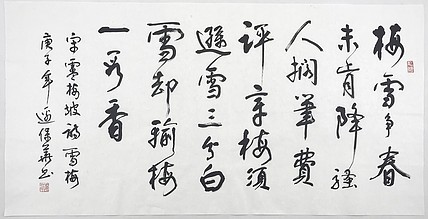 梅雪争春
未肯降骚
人搁笔费
评章梅须
逊雪三分白
雪却输梅
一段香
宋卢梅坡诗雪梅
庚子年 边保华书